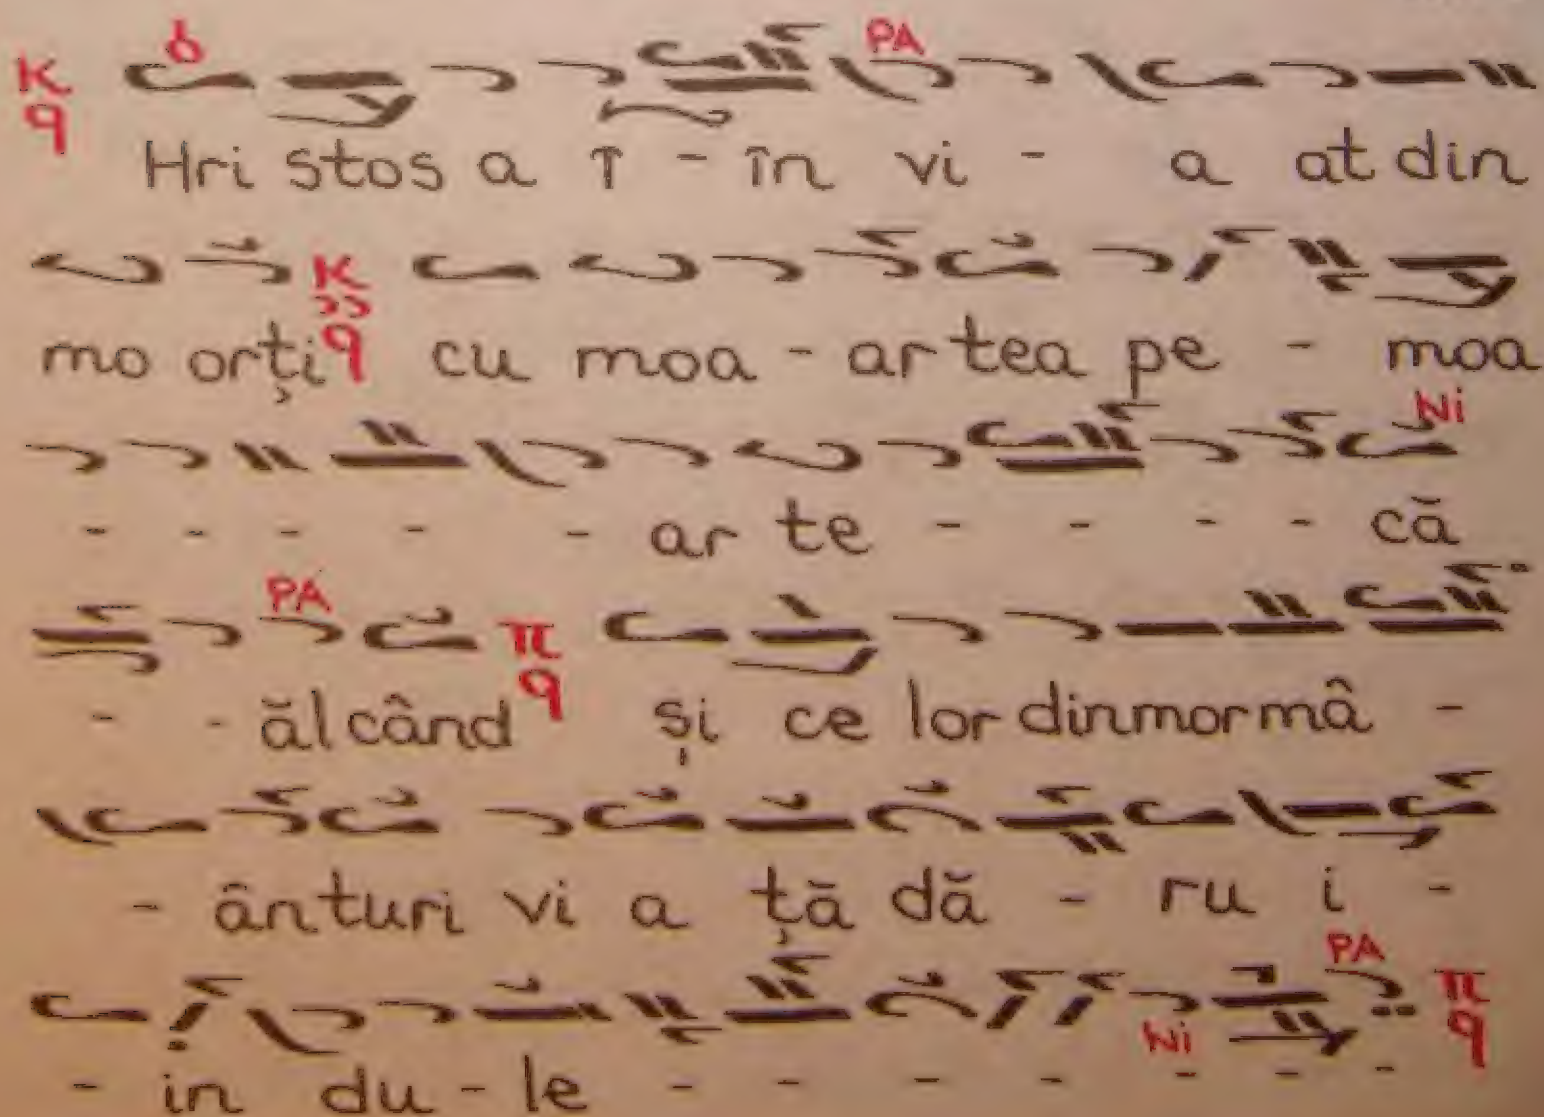 PA
Hri stos a î - în vi - a at din
mo orți cu moa - ar tea pe - moa
Ni
- - - - - ar te - - - - că
PA
- - ălcând și ce lor dinmormâ -
- ânturi vi a ță dă - ru i -
PA
Ni
- in du - le - - - - - - -